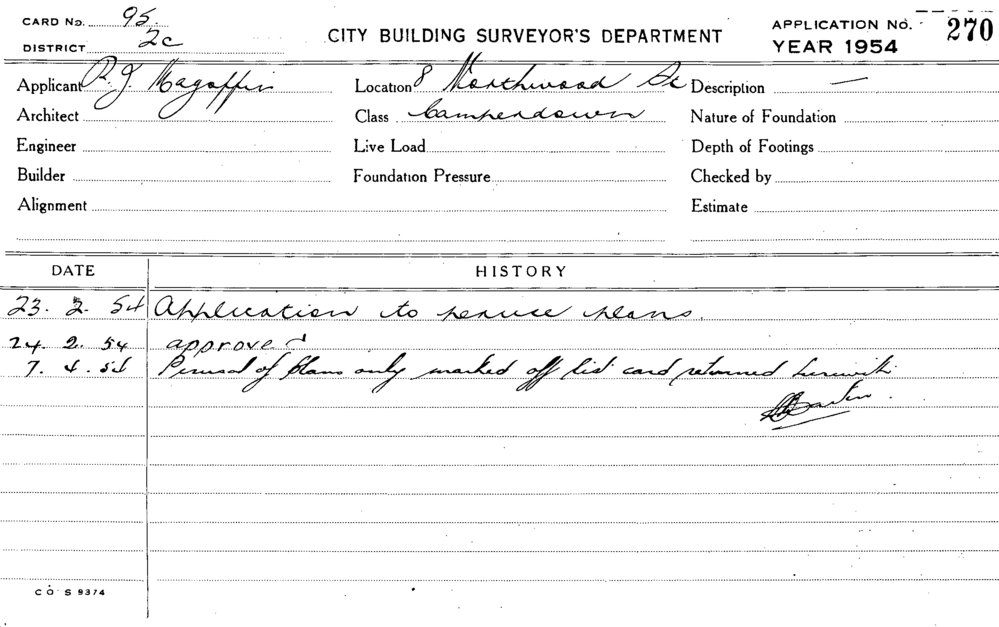 CARD No. 95.
DISTRICT 2c
CITY BUILDING SURVEYOR'S DEPARTMENT
APPLICATION No. 270
YEAR 1954
Applicant R. J. Magoffin Location 8 Northwood St Description —
Architect Class Camperdown Nature of Foundation
Engineer Live Load Depth of Footings
Builder Foundation Pressure Checked by
Alignment Estimate
DATE HISTORY
23. 2. 54 Application to peruse plans.
24. 2. 54 approved
7. 4. 54 Perusal of plans only marked off list card returned herewith
CO S 9374